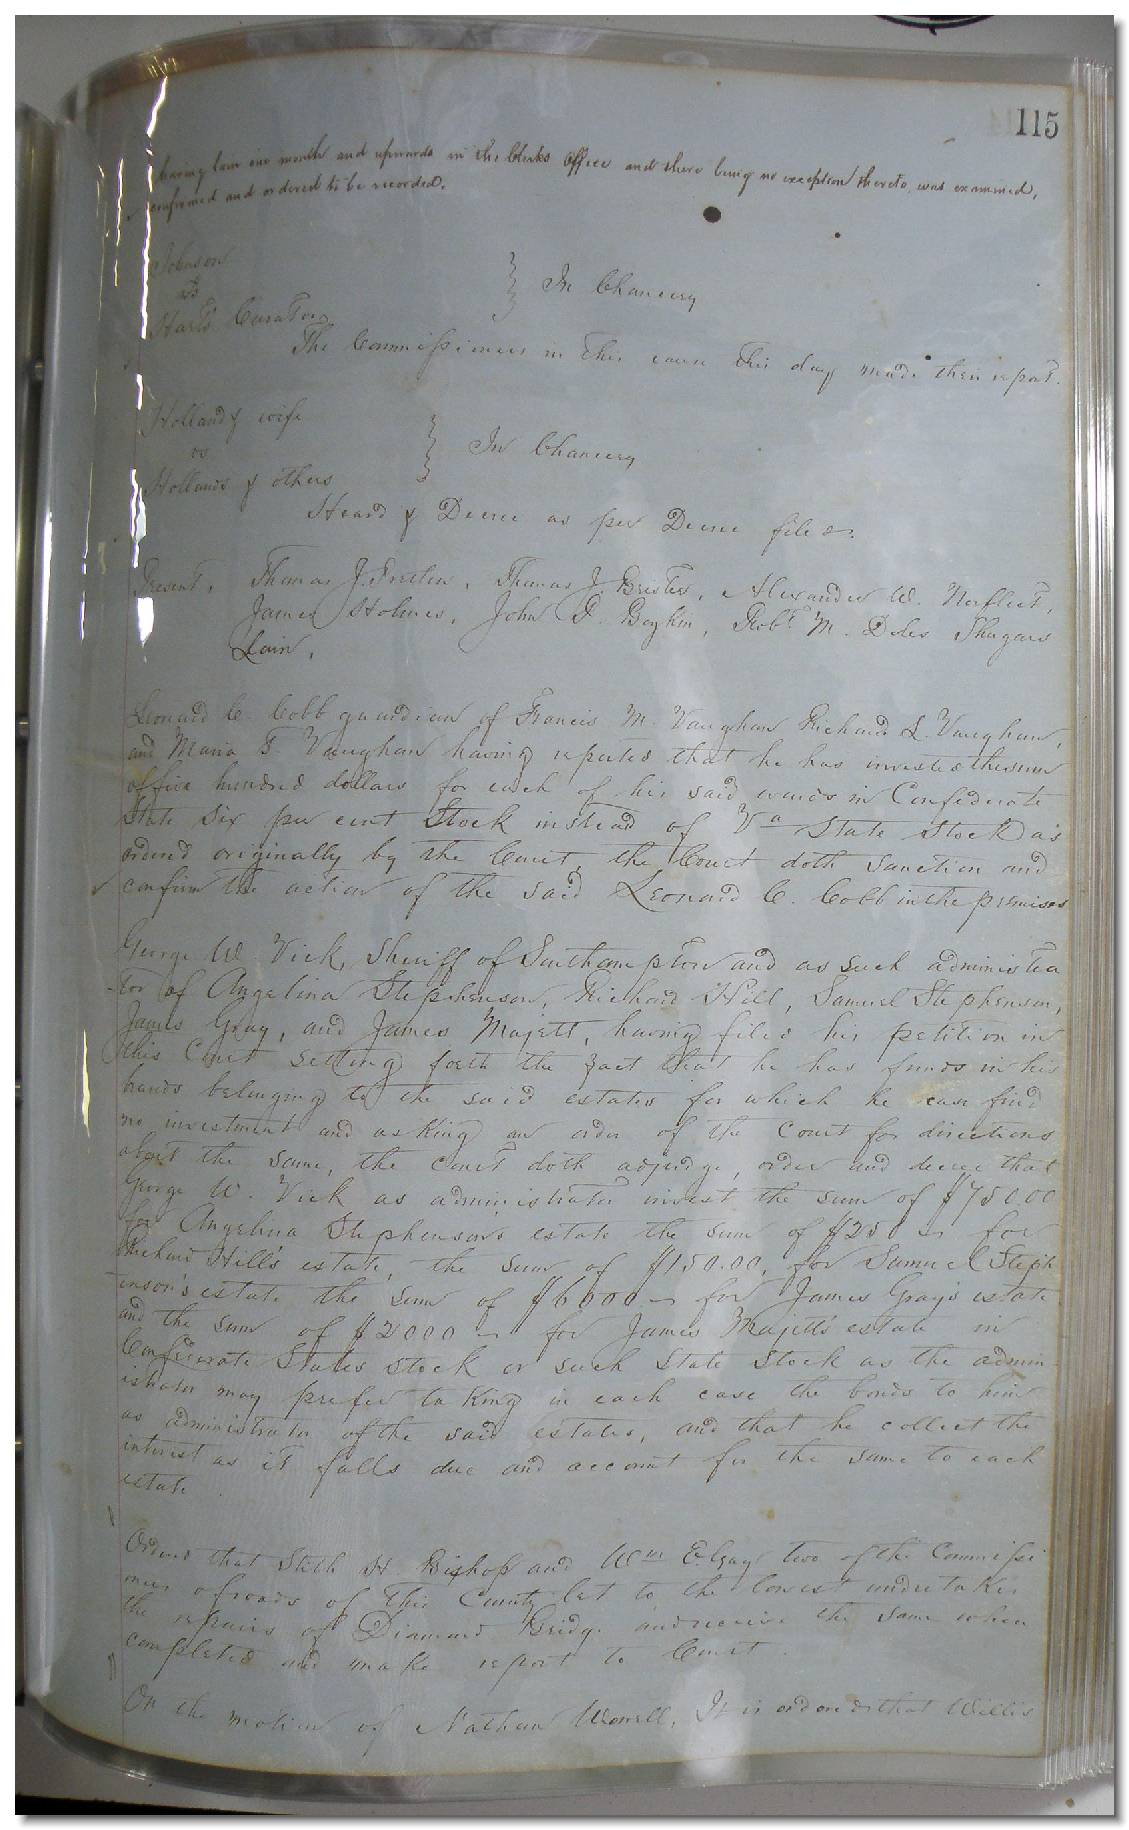 115
having lain one month and upwards in the Clerks Office and there being no exception thereto, was examined,
confirmed and ordered to be recorded.
Johnson
vs
Harts Curator
In Chancery
The Commissioners in this cause this day made their report.
Holland & wife
vs
Hollands & others
In Chancery
Heard & Decree as per Decree filed.
Present, Thomas J. Pretlow, Thomas J. Brister, Alexander W. Norfleet,
James Holmes, John D. Boykin, Robt. M. Doles
Lain,
Leonard C. Cobb guardian of Francis M. Vaughan Richard L. Vaughan,
and Maria F. Vaughan having reported that he has invested the sum
of five hundred dollars for each of his said wards in Confederate
State Six per cent Stock instead of Va State Stock as
ordered originally by the Court, the Court doth sanction and
confirm the action of the said Leonard C. Cobb in the premises
George W. Vick, Sheriff of Southampton and as such administra
tor of Angelina Stephenson, Richard Hill, Samuel Stephenson,
James Gray, and James Majett, having filed his petition in
this Court setting forth the fact that he has funds in his
hands belonging to the said estates for which he can find
no investment and asking an order of the Court for directions
about the same, the Court doth adjudge, order and decree that
George W. Vick as administrator invest the sum of $750.00
for Angelina Stephenson's estate the sum of $250 for
Richard Hill's estate, the sum of $150.00, for Samuel Steph
enson's estate the sum of $6000 for James Gray's estate
and the sum of $2000 for James Majett's estate in
Confederate States Stock or such State Stock as the admin
istrator may prefer taking in each case the bonds to him
as administrator of the said estates, and that he collect the
interest as it falls due and account for the same to each
estate.
Ordered that Stith H. Bishop and Wm E. Gay two of the Commissi
oners of roads of this County let to the lowest undertaker
the repairs of Diamond Bridge and receive the same when
completed and make report to Court.
On the motion of Nathan Worrell, It is ordered that Willis